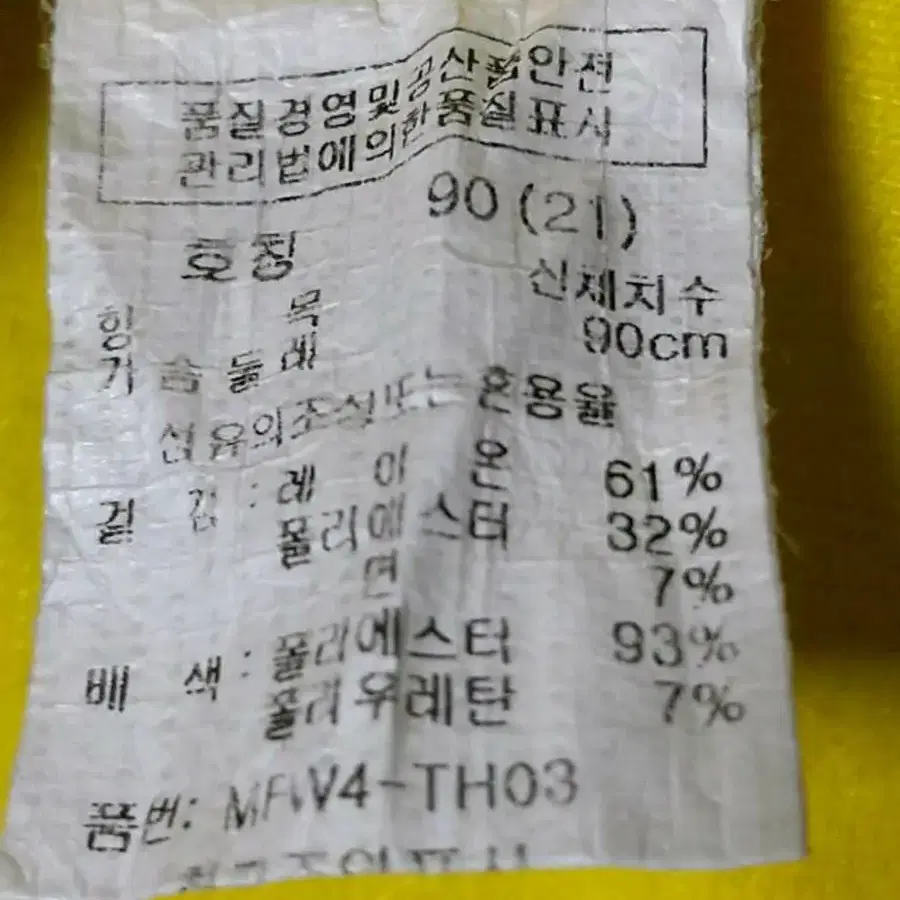 품질경영및공산품안전
관리법에의한품질표시
호칭 90 (21)
항 목 신체치수
가 슴 둘 레 90cm
섬유의조성또는혼용율
겉 감 : 레 이 온 61%
폴리에스터 32%
면 7%
배 색 : 폴리에스터 93%
폴리우레탄 7%
품번: -TH03